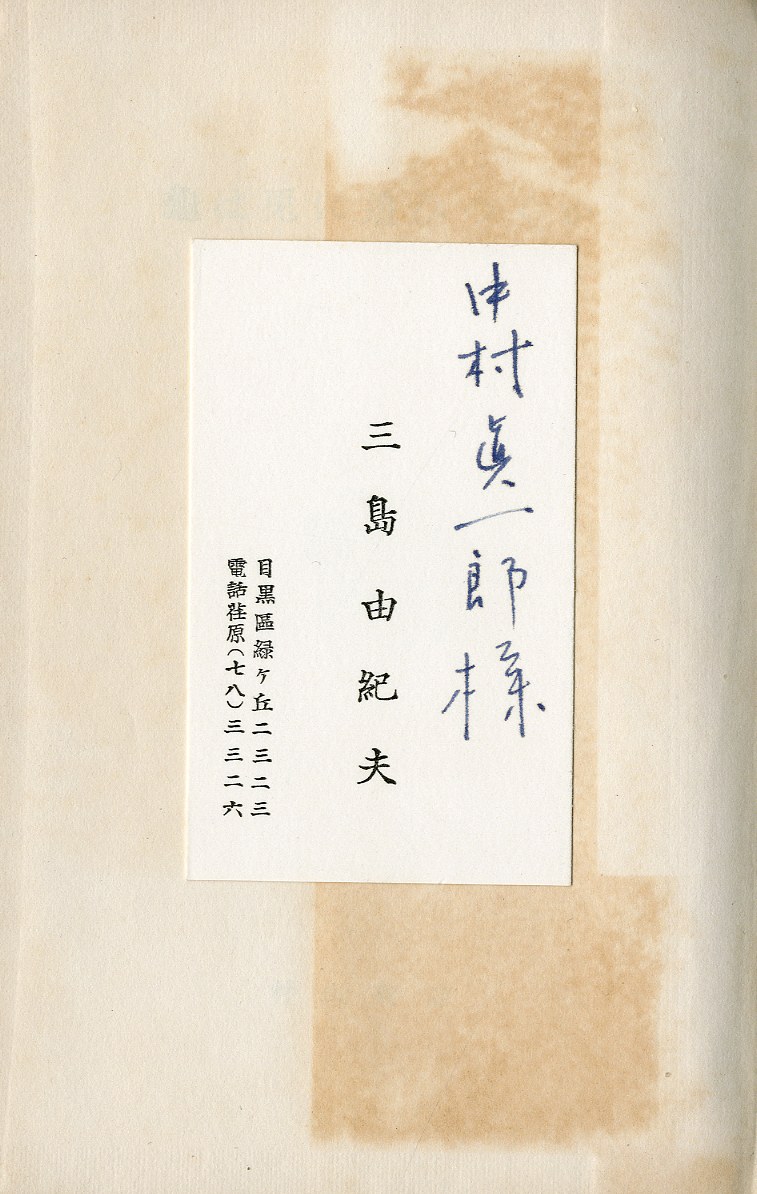 中村眞一郎様
三島由紀夫
目黒區緑ケ丘二三二三
電話荏原(七八)三三二六